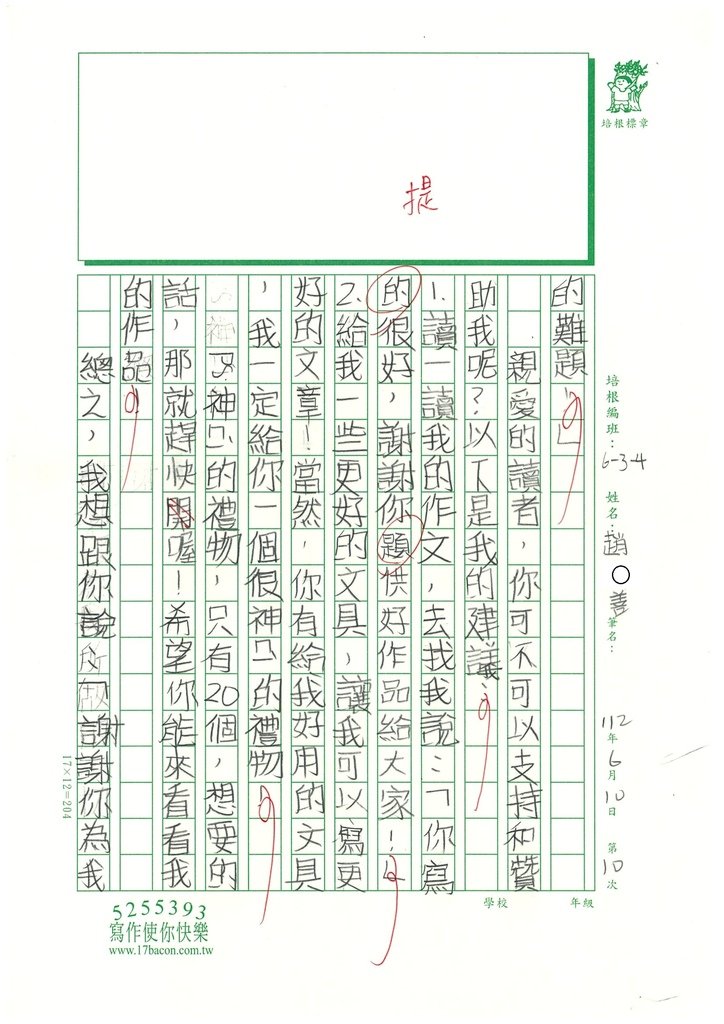 培根標章
提
培根編班：6-3-4
姓名：趙○善
筆名：
112年6月10日
第10次
的難題」
親愛的讀者，你可不可以支持和贊
助我呢？以下是我的建議
1.讀一讀我的作文，去找我說：「你寫
的很好，謝謝你題供好作品給大家！」
2.給我一些更好的文具，讓我可以寫更
好的文章！當然，你有給我好用的文具
，我一定給你一個很神ㄇㄧˋ的禮物
神ㄇㄧˋ的禮物，只有20個，想要的
話，那就趕快喔！希望你能來看看我
的作品
總之，我想跟你說謝謝你為我
17×12=204
學校
年級
5255393
寫作使你快樂
www.17bacon.com.tw